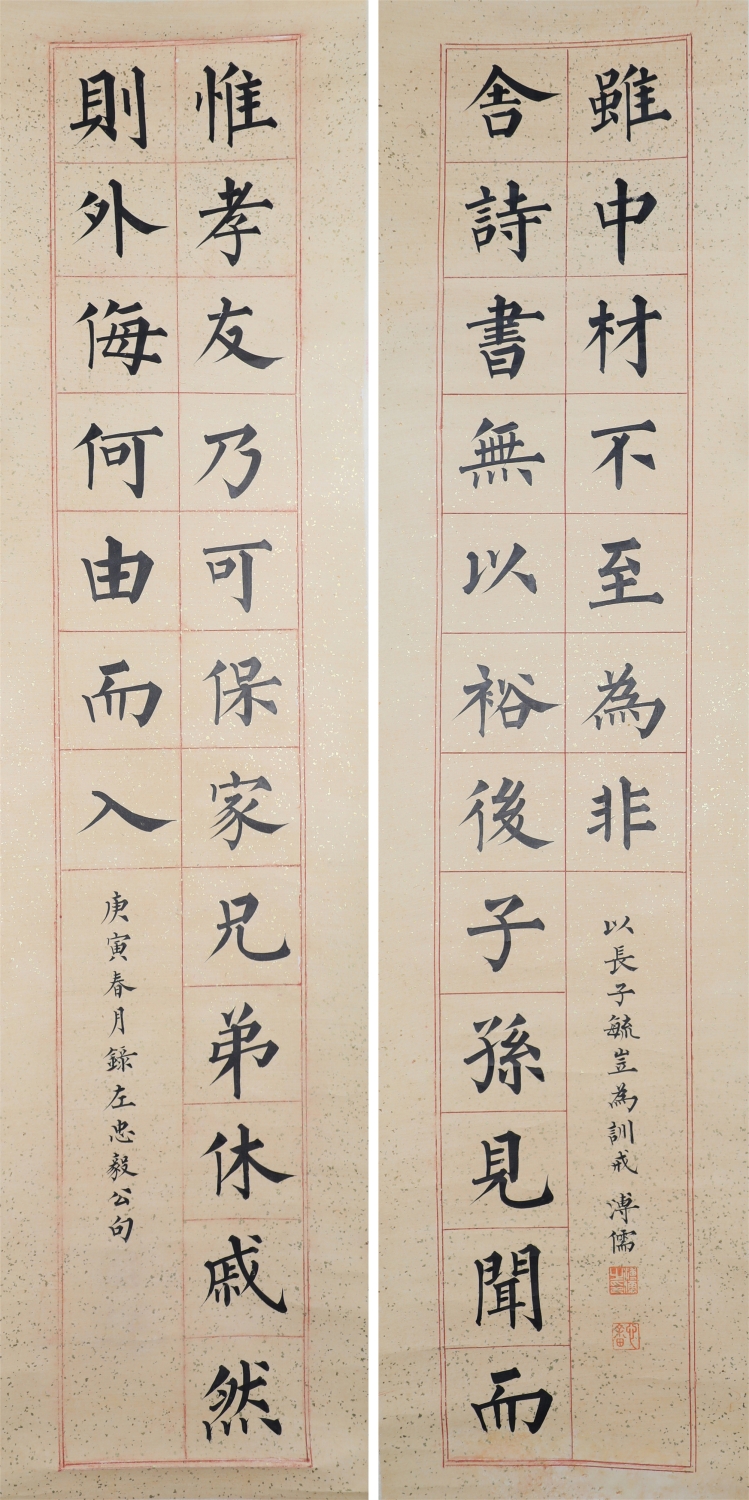 惟孝友乃可保家兄弟休戚然
則外侮何由而入
庚寅春月錄左忠毅公句
舍詩書無以裕後子孫見聞而
雖中材不至為非
以長子毓豈為訓戒 溥儒
心畬